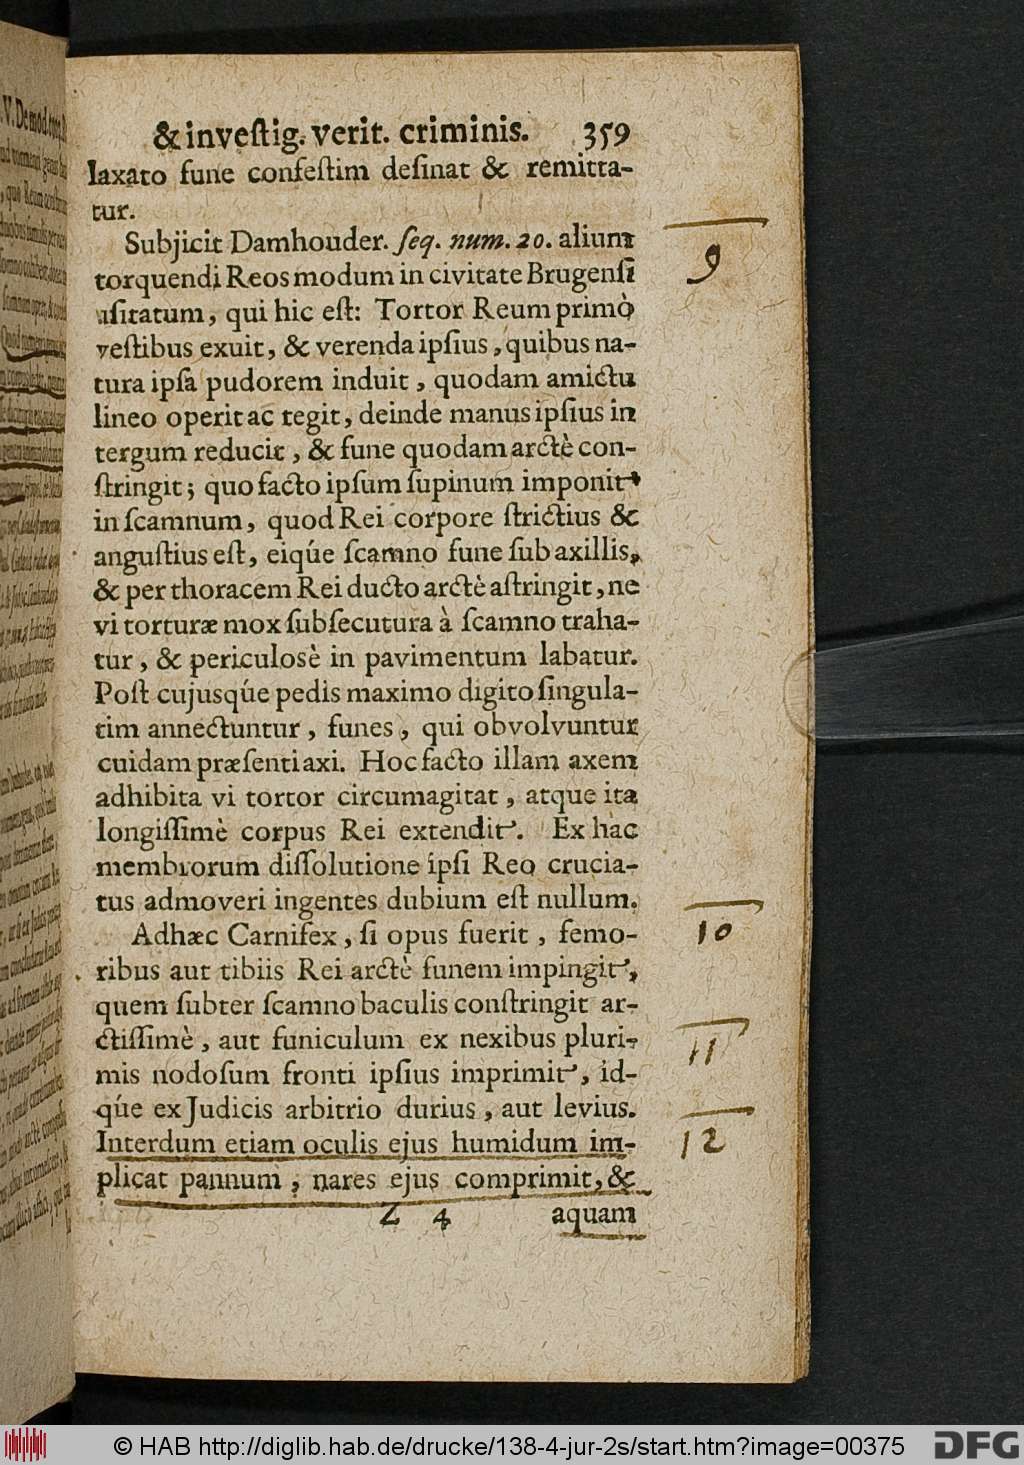 & inveſtig. verit. criminis. 359
laxato fune confeſtim deſinat & remitta-
tur.
Subjicit Damhouder. ſeq. num. 20. alium
torquendi Reos modum in civitate Brugenſi
uſitatum, qui hic eſt: Tortor Reum primò
veſtibus exuit, & verenda ipſius, quibus na-
tura ipſa pudorem induit, quodam amictu
lineo operit ac tegit, deinde manus ipſius in
tergum reducit, & fune quodam arctè con-
ſtringit; quo facto ipſum ſupinum imponit
in ſcamnum, quod Rei corpore ſtrictius &
anguſtius eſt, eiqúe ſcamno fune ſub axillis,
& per thoracem Rei ducto arctè aſtringit, ne
vi torturæ mox ſubſecutura à ſcamno traha-
tur, & periculosè in pavimentum labatur.
Poſt cujusqúe pedis maximo digito ſingula-
tim annectuntur, funes, qui obvolvuntur
cuidam præſenti axi. Hoc facto illam axem
adhibita vi tortor circumagitat, atque ita
longiſſimè corpus Rei extendit. Ex hac
membrorum diſſolutione ipſi Reo crucia-
tus admoveri ingentes dubium eſt nullum.
Adhæc Carnifex, ſi opus fuerit, femo-
ribus aut tibiis Rei arctè funem impingit,
quem ſubter ſcamno baculis conſtringit ar-
ctiſſimè, aut funiculum ex nexibus pluri-
mis nodoſum fronti ipſius imprimit, id-
qúe ex Judicis arbitrio durius, aut levius.
Interdum etiam oculis ejus humidum im-
plicat pannum, nares ejus comprimit, &
Z 4 aquam
9
10
11
12
© HAB http://diglib.hab.de/drucke/138-4-jur-2s/start.htm?image=00375
DFG